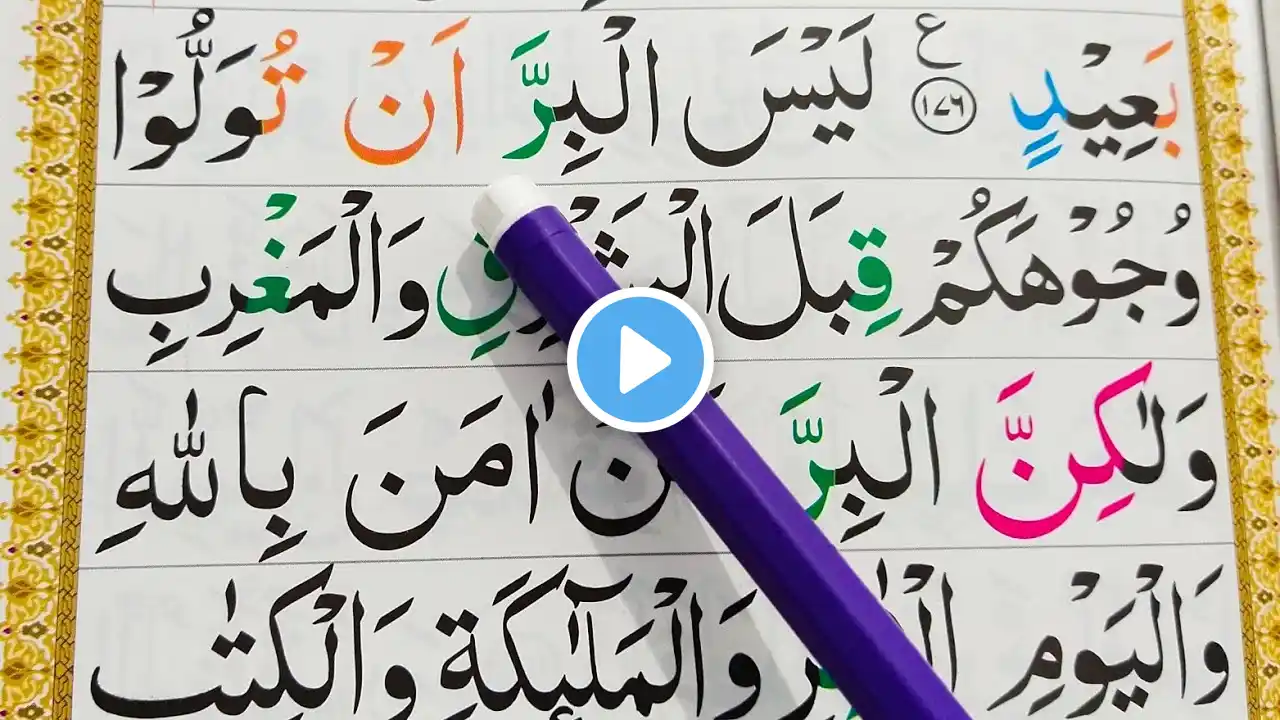 بَعِيْدٍ ﴿١٧٦﴾ ع لَيْسَ الْبِرَّ اَنْ تُوَلُّوْا
وُجُوْهَكُمْ قِبَلَ الْمَشْرِقِ وَالْمَغْرِبِ
وَلٰكِنَّ الْبِرَّ اٰمَنَ بِاللّٰهِ
وَالْيَوْمِ وَالْمَلٰٓئِكَةِ وَالْكِتٰب